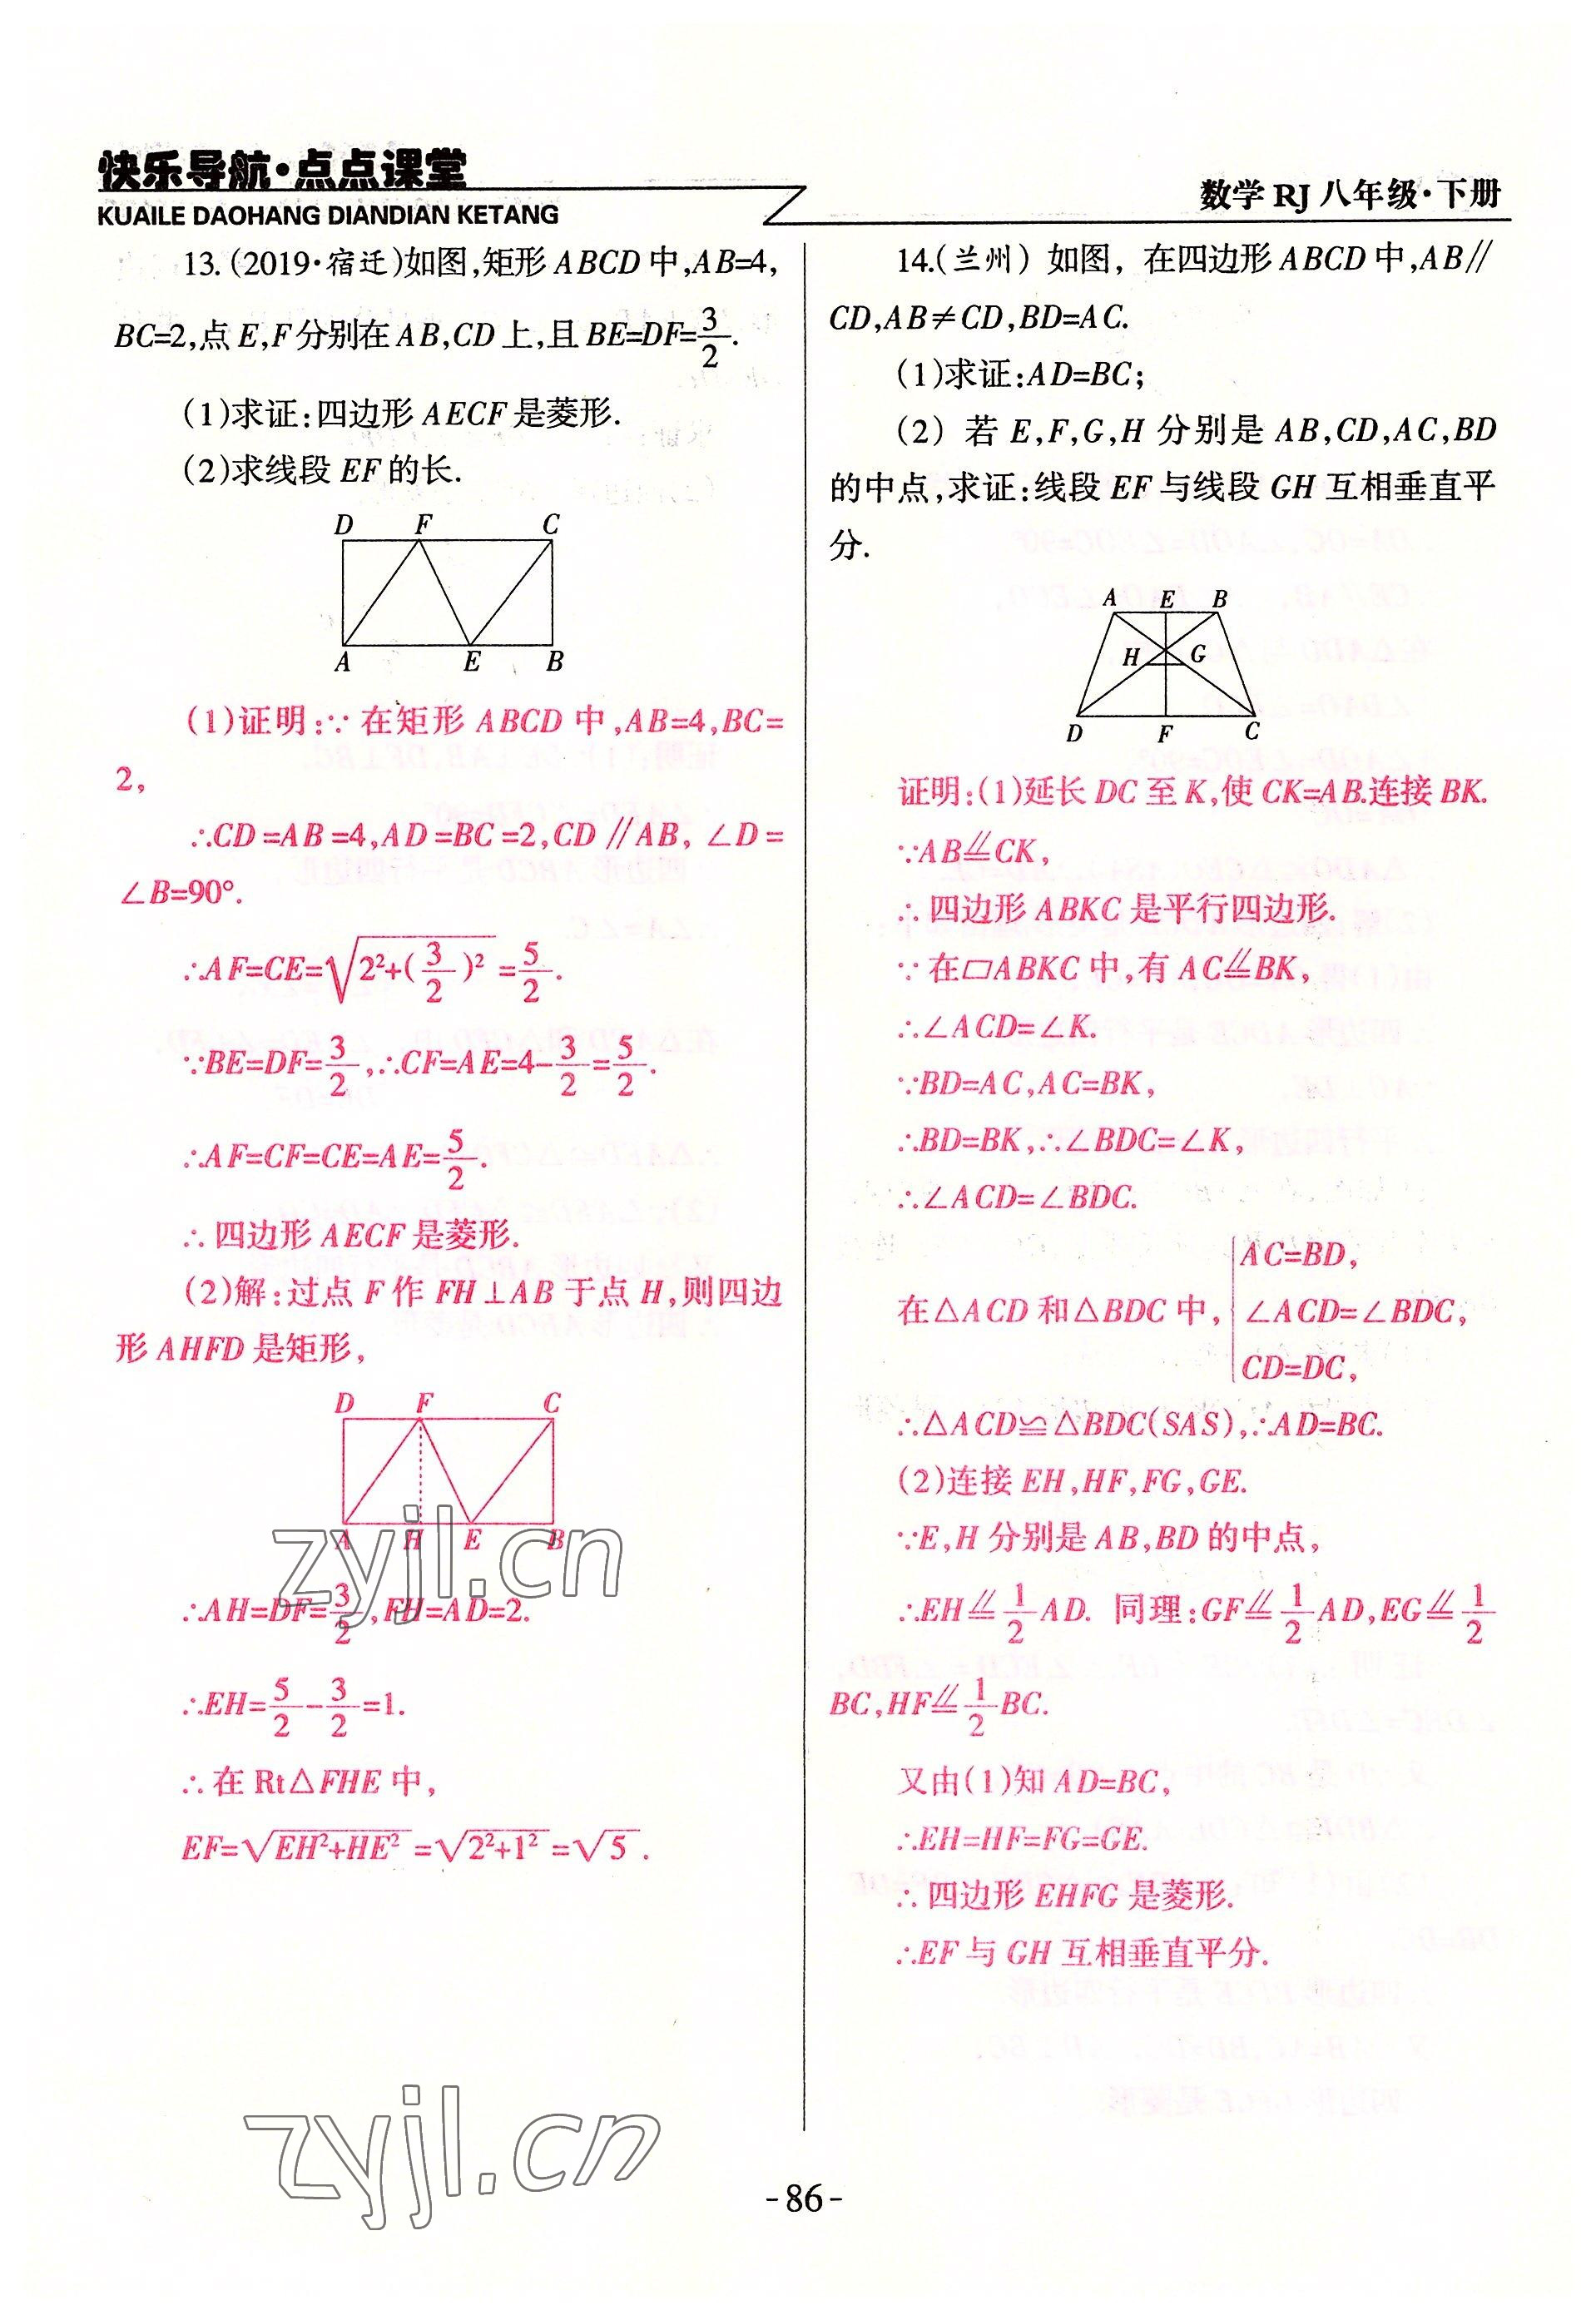 快乐导航·点点课堂
KUAILE DAOHANG DIANDIAN KETANG
数学 RJ 八年级·下册
13.(2019·宿迁)如图,矩形 ABCD 中,AB=4,
BC=2,点 E,F 分别在 AB,CD 上,且 BE=DF=3/2.
(1)求证:四边形 AECF 是菱形.
(2)求线段 EF 的长.
D F C
A E B
(1)证明:∵ 在矩形 ABCD 中,AB=4,BC=
2,
∴CD=AB=4,AD=BC=2,CD∥AB,∠D=
∠B=90°.
∴AF=CE=√(2²+(3/2)²)=5/2.
∵BE=DF=3/2,∴CF=AE=4-3/2=5/2.
∴AF=CF=CE=AE=5/2.
∴ 四边形 AECF 是菱形.
(2)解:过点 F 作 FH⊥AB 于点 H,则四边
形 AHFD 是矩形,
D F C
A H E B
zyjl.cn
∴AH=DF=3/2,FH=AD=2.
∴EH=5/2-3/2=1.
∴ 在 Rt△FHE 中,
EF=√(EH²+HE²)=√(2²+1²)=√5.
14.(兰州) 如图, 在四边形 ABCD 中,AB∥
CD,AB≠CD,BD=AC.
(1)求证:AD=BC;
(2) 若 E,F,G,H 分别是 AB,CD,AC,BD
的中点,求证:线段 EF 与线段 GH 互相垂直平
分.
A E B
H G
D F C
证明:(1)延长 DC 至 K,使 CK=AB.连接 BK.
∵AB⫽＝CK,
∴ 四边形 ABKC 是平行四边形.
∵ 在▱ABKC 中,有 AC⫽＝BK,
∴∠ACD=∠K.
∵BD=AC,AC=BK,
∴BD=BK,∴∠BDC=∠K,
∴∠ACD=∠BDC.
AC=BD,
在△ACD 和△BDC 中, ∠ACD=∠BDC,
CD=DC,
∴△ACD≌△BDC(SAS),∴AD=BC.
(2)连接 EH,HF,FG,GE.
∵E,H 分别是 AB,BD 的中点,
∴EH⫽＝1/2AD. 同理:GF⫽＝1/2AD,EG⫽＝1/2
BC,HF⫽＝1/2BC.
又由(1)知 AD=BC,
∴EH=HF=FG=GE.
∴ 四边形 EHFG 是菱形.
∴EF 与 GH 互相垂直平分.
zyjl.cn
-86-